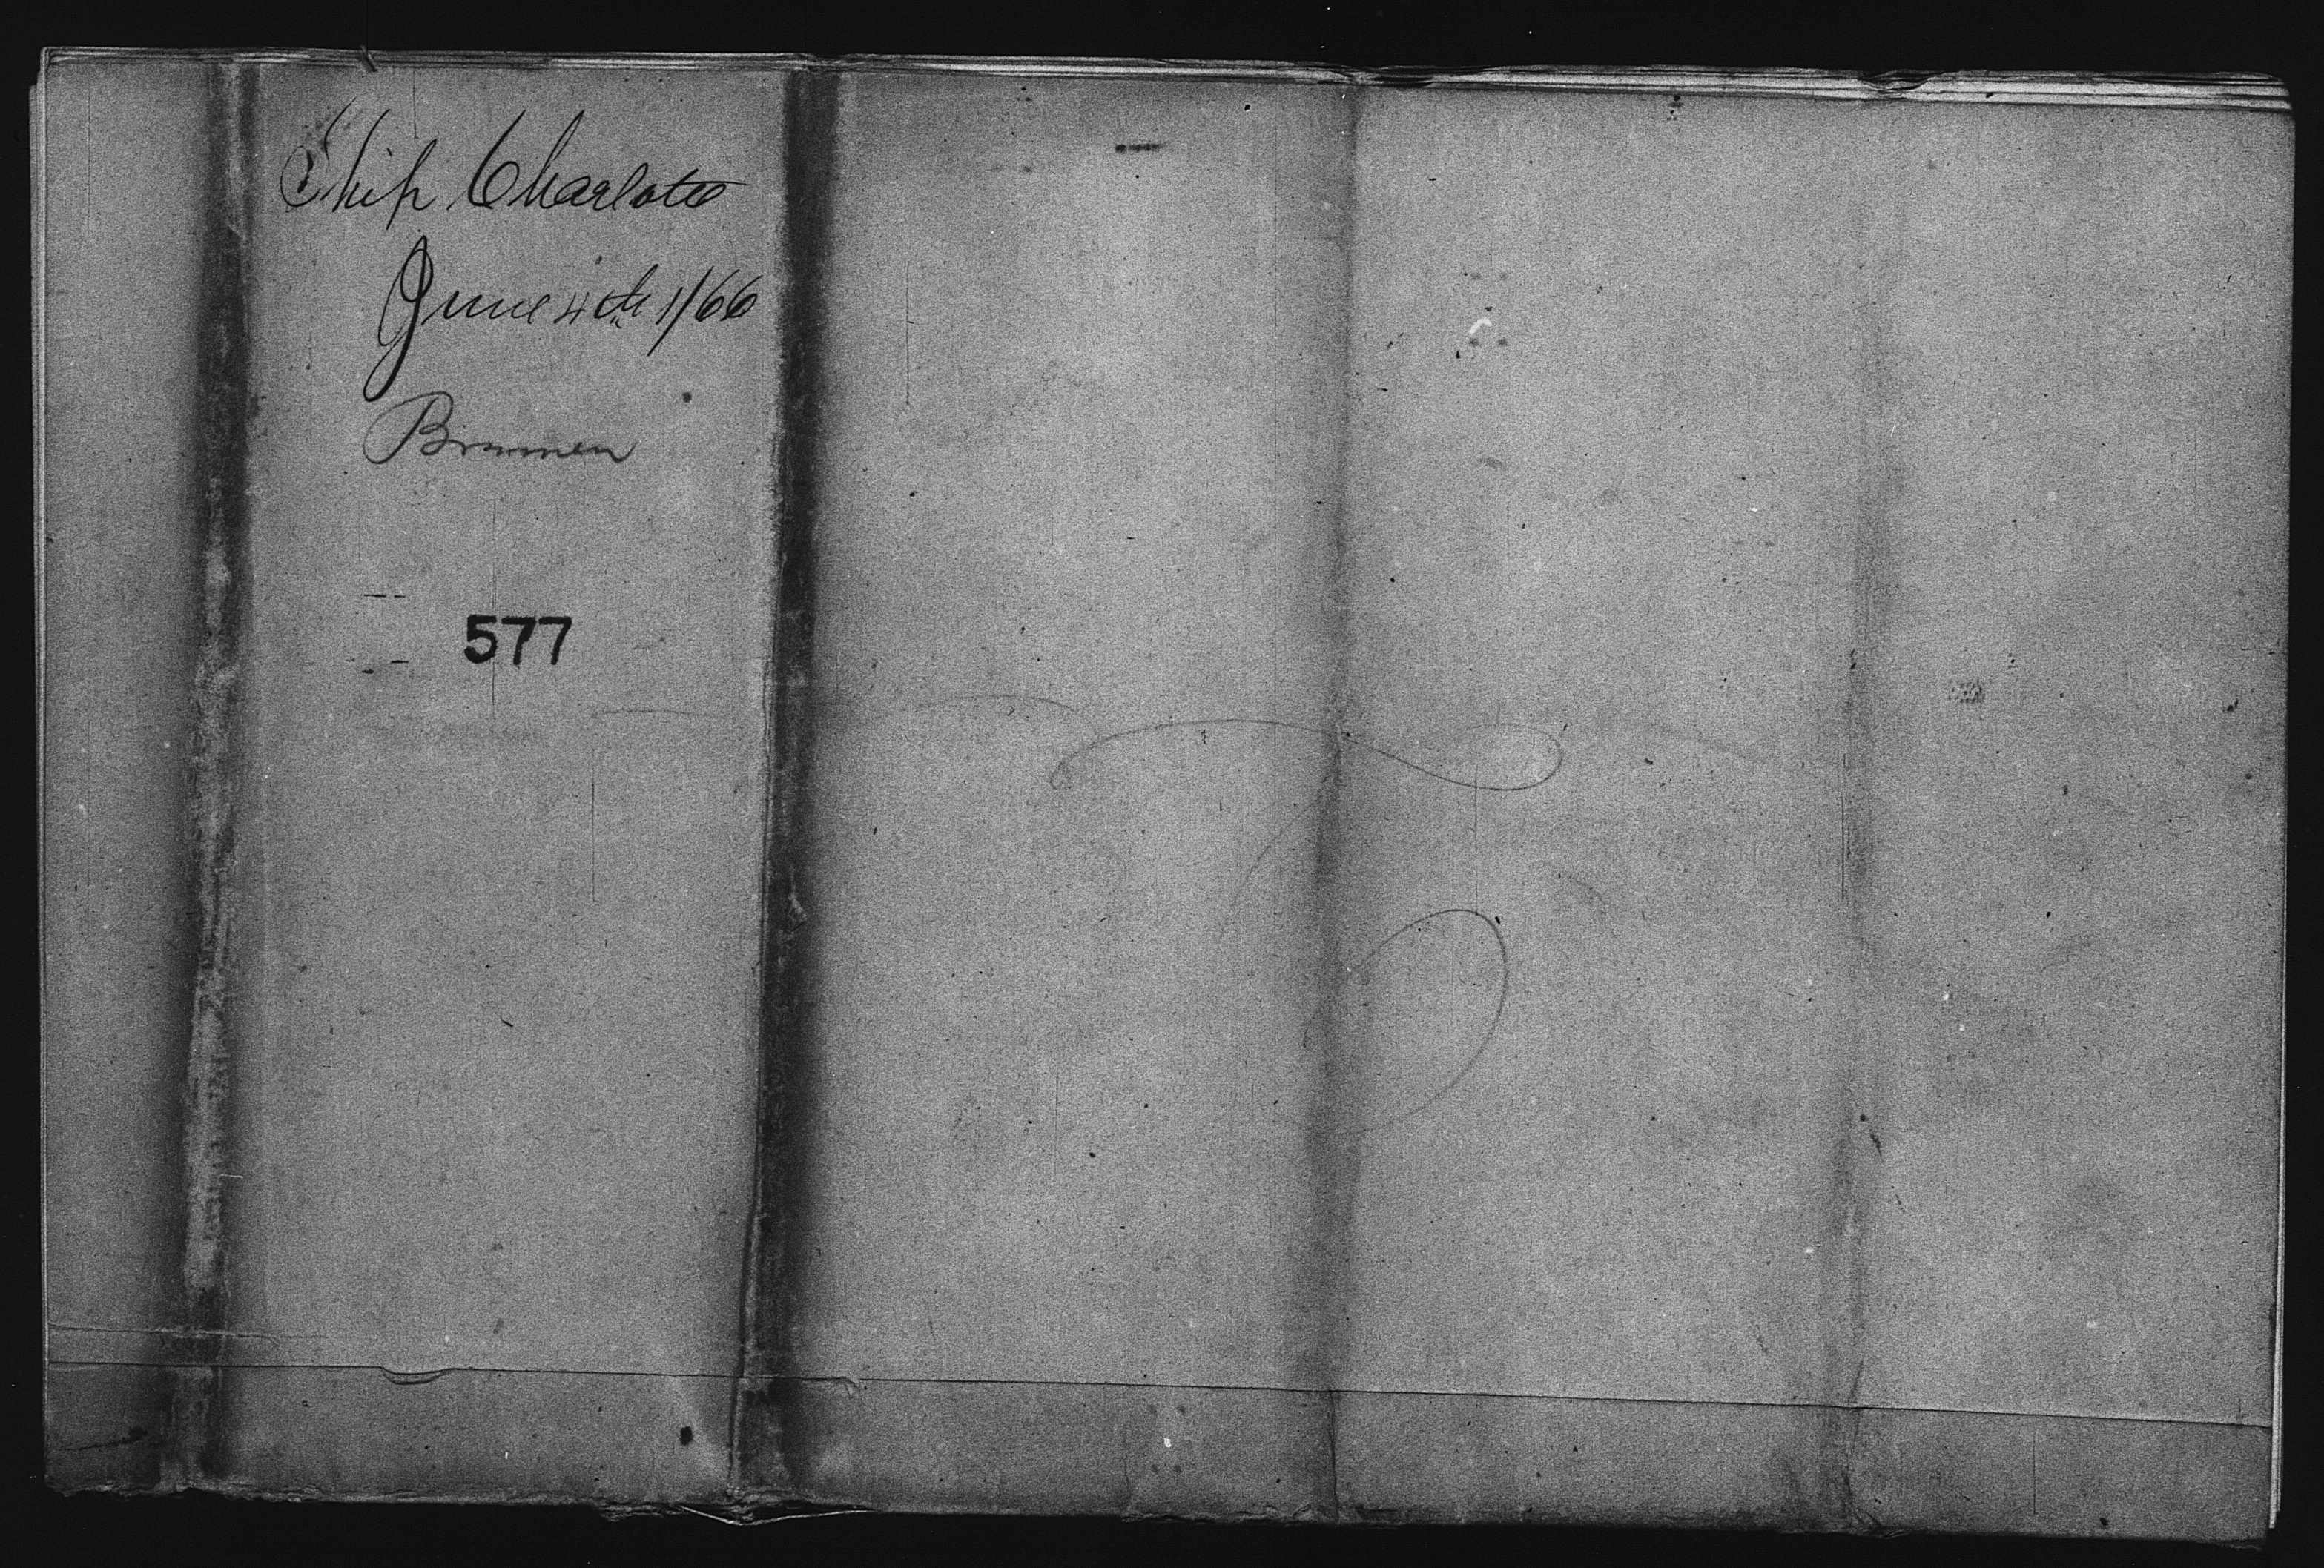 Ship Charlotte
June 4th 1/66
Bremen
577